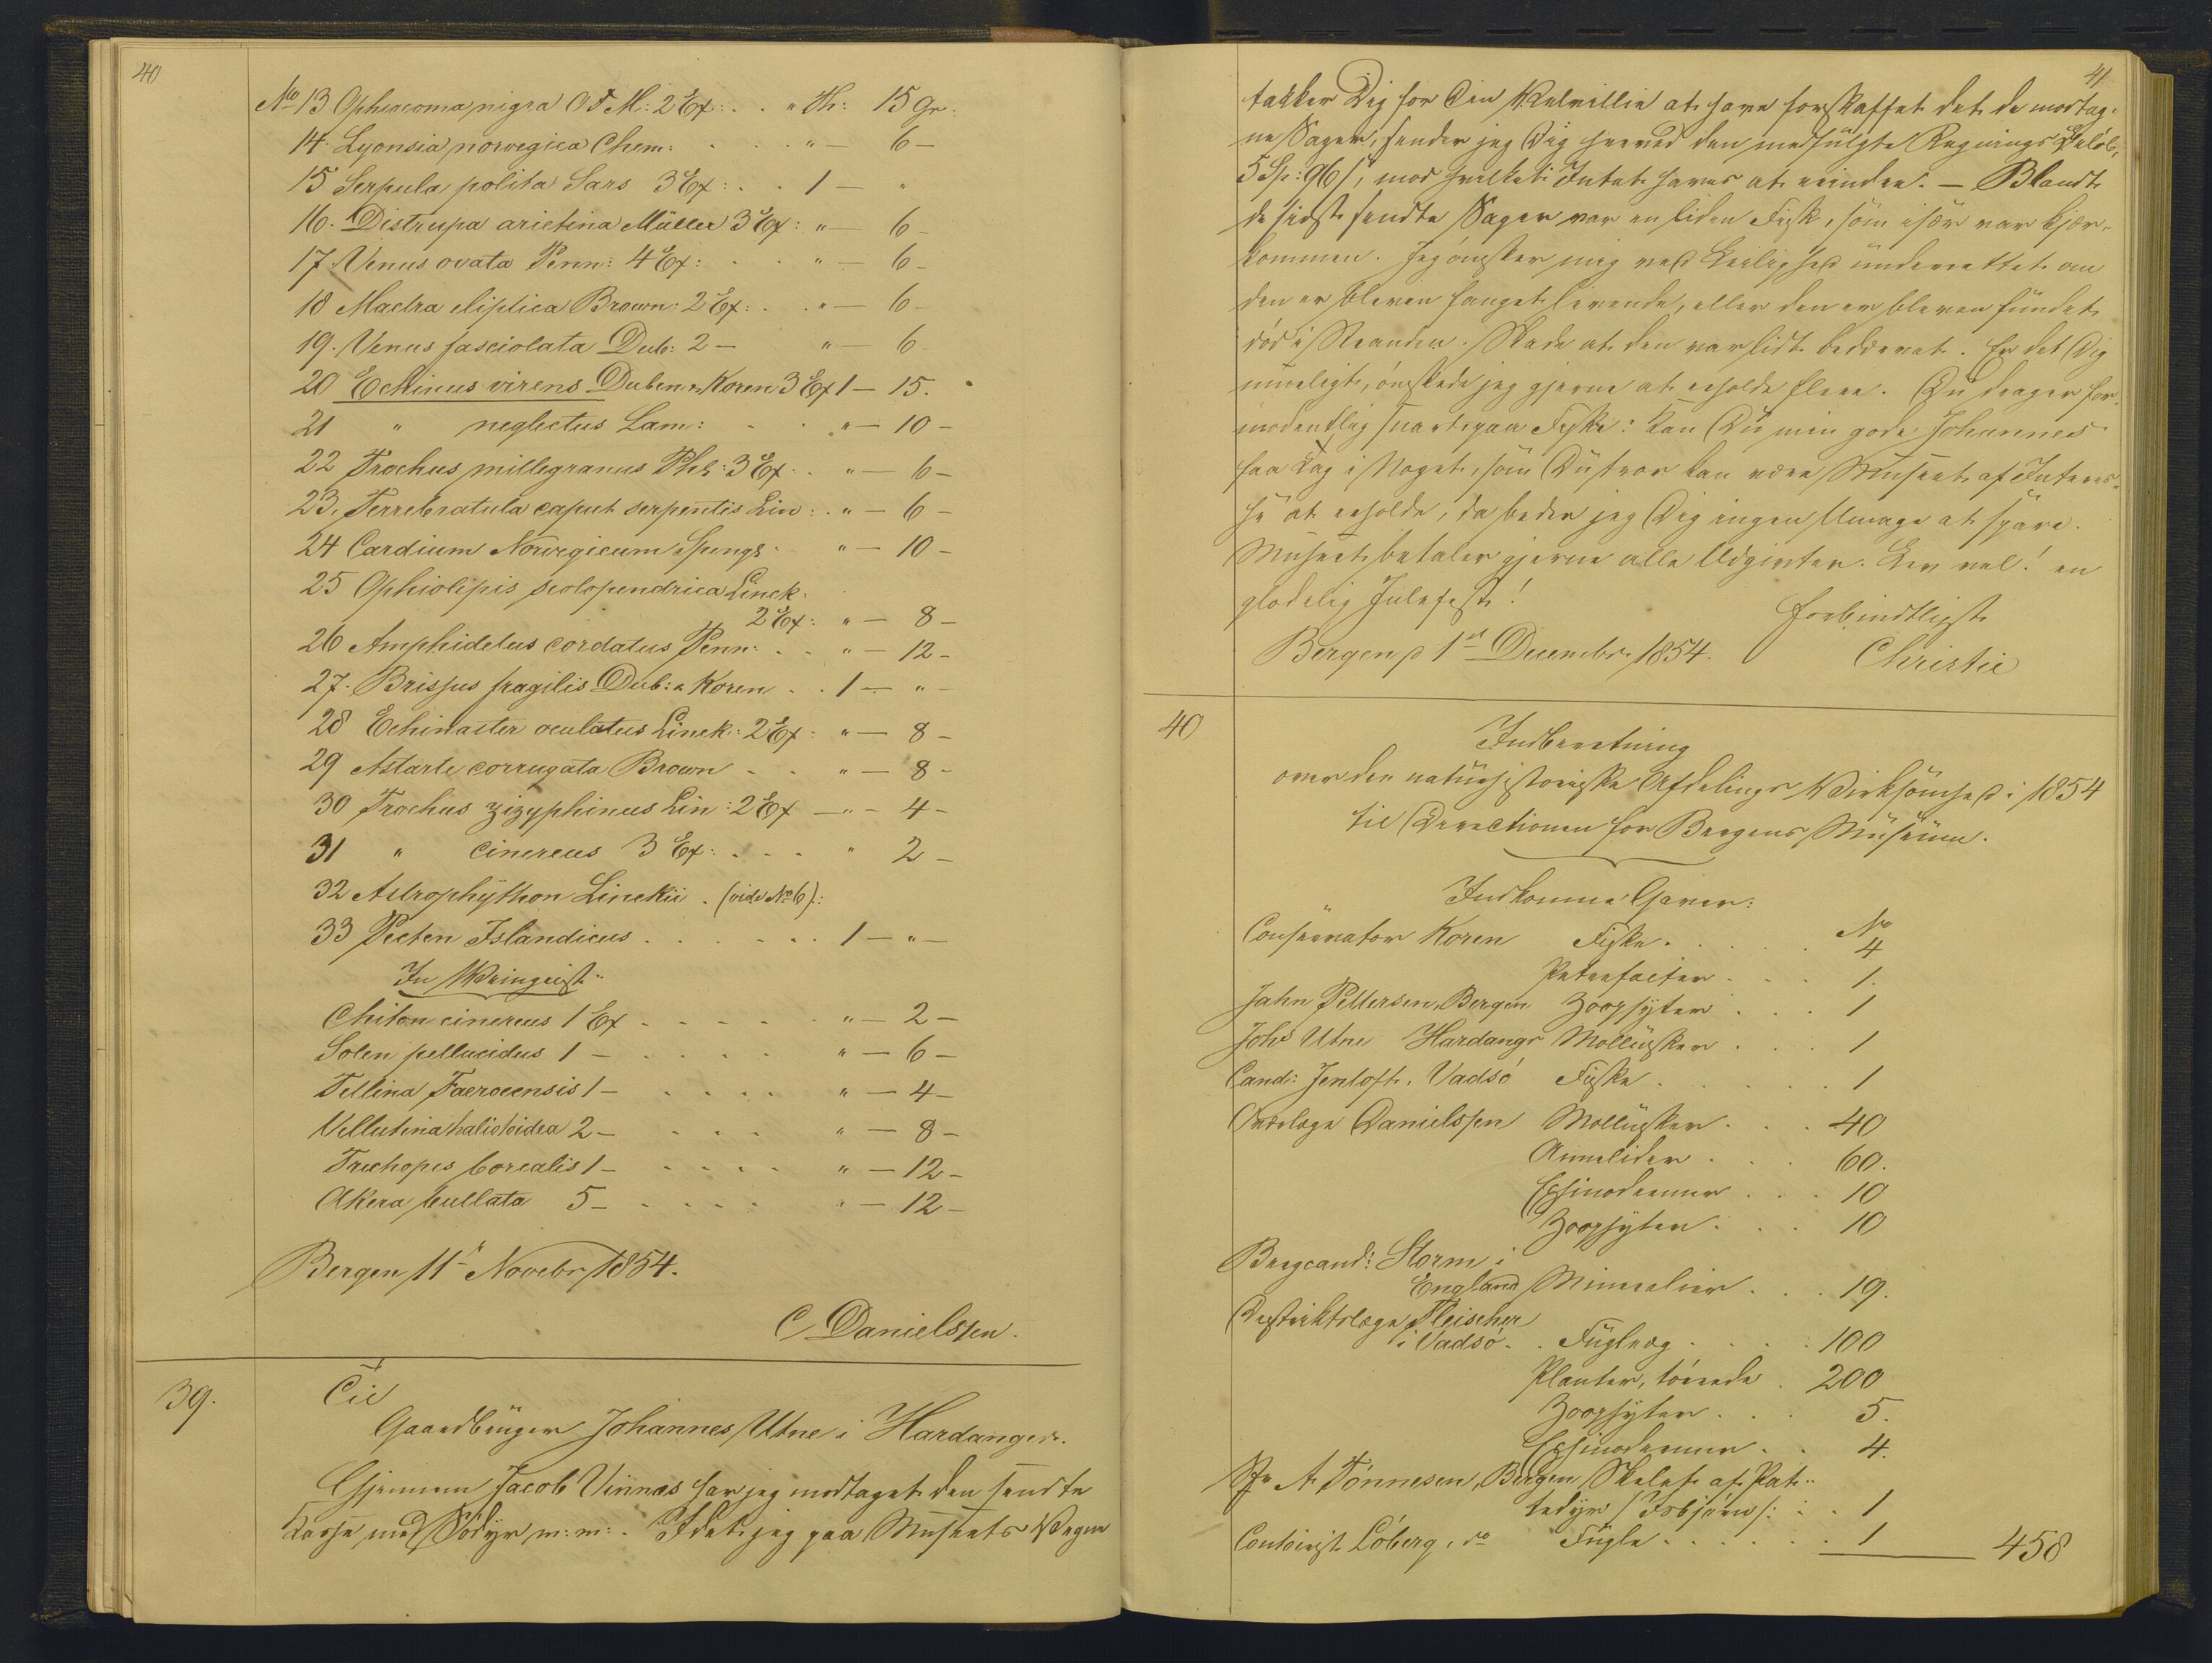 40
No 13 Ophiocoma nigra O F M: 2 Ex: . . " Th: 15 Gr:
14. Lyonsia norvegica Chem: . . . . " — 6 —
15 Serpula polita Sars 3 Ex: . . 1 — "
16. Distrupa arietina Müller 3 Ex: " — 6 —
17. Venus ovata Penn: 4 Ex: . . " — 6 —
18 Mactra eliptica Brown: 2 Ex: . . " — 6 —
19. Venus fasciolata Dub: 2 — " — 6
20 Echinus virens Duben & Koren 3 Ex 1 — 15.
21 " neglectus Lam: . . . " — 10 —
22 Trochus millegranus Phl: 3 Ex . . " — 6 —
23. Terrebratula caput serpentis Lin: . " — 6 —
24 Cardium Norvegicum Spengl: " — 10 —
25 Ophiolipis scolopendrica Linck:
2 Ex: " — 8 —
26 Amphidetus cordatus Penn: . . " — 12 —
27. Brissus fragilis Dub: & Koren . . 1 — " —
28 Echinaster oculatus Linck: 2 Ex: " — 8 —
29 Astarte corrugata Brown . . " — 8 —
30 Trochus zizyphinus Lin: 2 Ex — " — 4 —
31 " cinereus 3 Ex: . . . " 2 —
32 Astrophython Linckii . (vide No 6).:
33 Pecten Islandicus . . . . . . 1 — " —
In Weingeist
Chiton cinereus 1 Ex . . . . . " — 2 —
Solen pellucidus 1 — . . . . . " — 6 —
Tellina Faeroeensis 1 — . . . . " — 4 —
Vellutina haliotoidea 2 — . . . " — 8 —
Trichopis borealis 1 — . . . . " — 12 —
Akera bullata 5 — . . . . " — 12 —
Bergen 11te Novebr 1854.
C Danielssen.
39.
Til
Gaardbruger Johannes Utne i Hardanger.
Gjennem Jacob Vinnæs har jeg modtaget den sendte
Kasse med Södyr m: m: . Idet jeg paa Museets Vegne
41
takker Dig for Din Velvillie at have forskaffet det de modtag-
ne Sager, sender jeg Dig herved den medfulgte Regnings Belöb,
5 Sp: 96 s, mod hvilket Intet haves at erindre. — Blandt
de sidst sendte Sager var en liden Fisk, som især var kjær-
kommen. Jeg önsker mig ved Leilighed underrettet om
den er bleven fanget levende, eller den er bleven fundet
död i Stranden. Skade at den var lidt bedærvet. Er det Dig
mueligt, önskede jeg gjerne at erholde flere. Du drager for-
modentlig snart paa Fiske: kan Du min gode Johannes
faa Tag i Noget, som Du troer kan være Museet af Interes-
se at erholde, da beder jeg Dig ingen Umage at spare.
Museet betaler gjerne alle Udgivter. Lev vel! en
glædelig Julefest!
forbindtligst
Bergen d 1st Decembr 1854. Christie
40
Indberetning
over den naturhistoriske Afdelings Virksomhed i 1854
til Directionen for Bergens Museum.
Indkomne Gaver:
No
Conservator Koren Fiske . . . . . 4
Petrefacter . . . 1.
Jahn Pettersen, Bergen Zoophyter . . . 1
Johs Utne Hardangr Mollusker . . . 1
Cand: Jentoft, Vadsö Fiske . . . . . 1
Overlæge Danielssen Mollusker . . . 40
Anneliden . . . 60.
Echinodermer . . . 10
Zoophyter . . . 10
Bergcand: Storm i
England Mineralier . . . 19.
Distriktslæge Fleischer
i Vadsö . . Fugleæg . . . . 100
Planter, törrede . 200
Zoophyter . . . 5.
Echinodermer . . 4.
Hr A. Tönnesen, Bergen Skelet af Pat-
tedyr /: Isbjörn /: . . 1
Contoirist Löberg, do Fugle . . . . . . 1 458